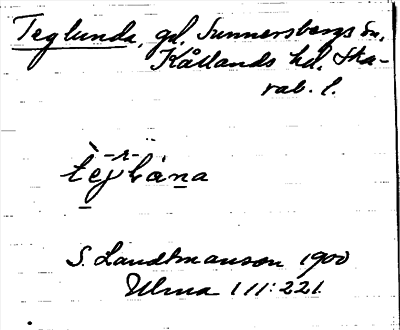 Teglunda, gd, Sunnersbergs sn,
Kållands hd, Ska-
rab. l.
S. Landtmanson 1900
Ulma 111:221.